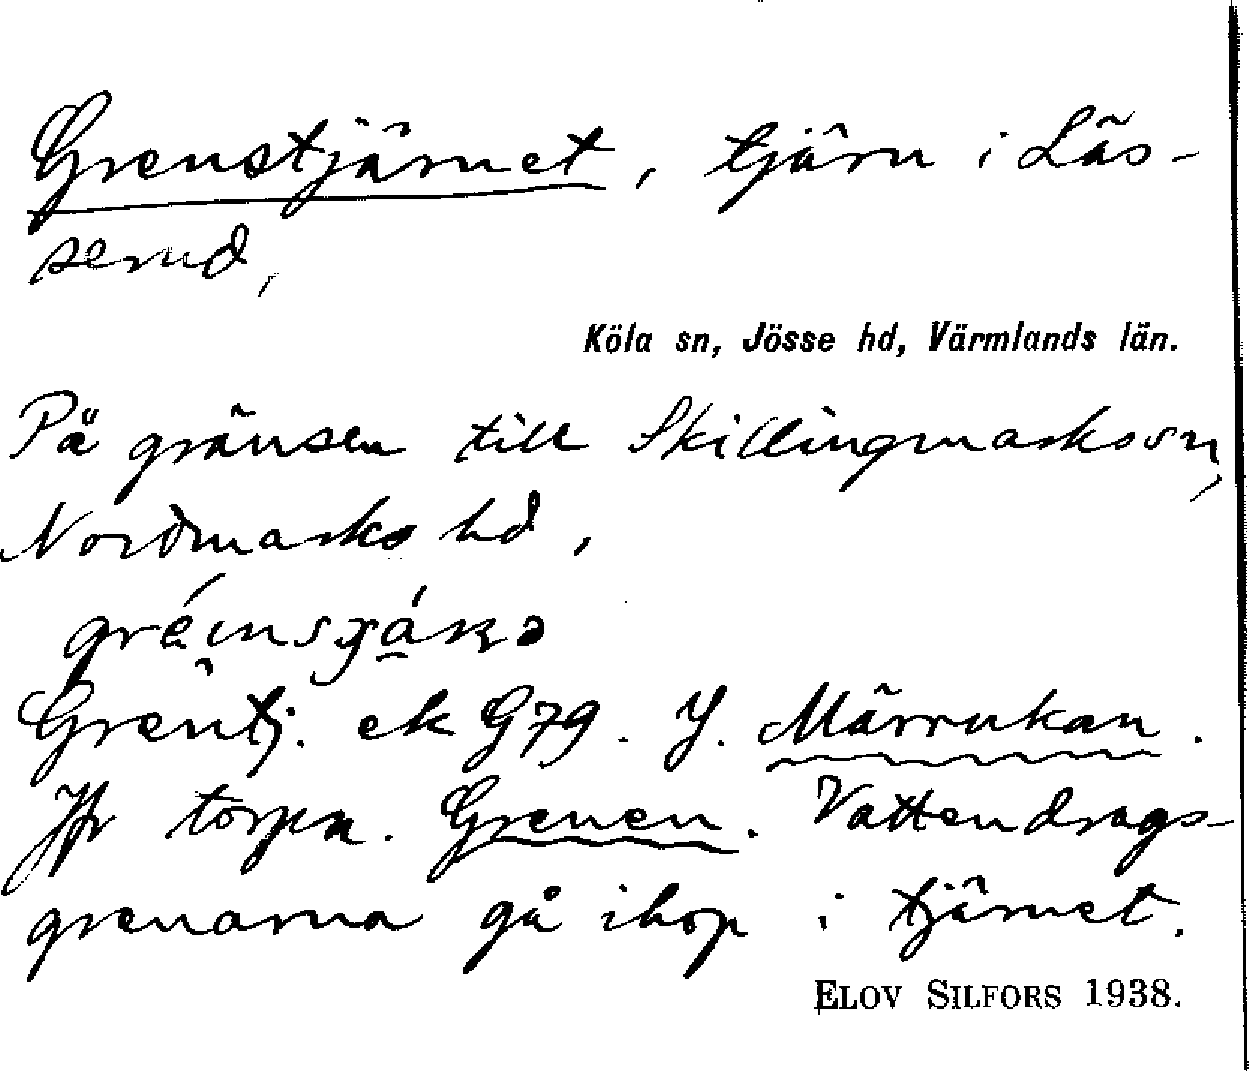 Grenstjärnet, tjärn i Läs-
serud,
Köla sn, Jösse hd, Värmlands län.
På gränsen till Skillingmarks sn,
Nordmarks hd,
Grentj. ek G79. Y. Märrukan.
Jfr torpn. Grenen. Vattendrags-
grenarna gå ihop i tjärnet.
ELOV SILFORS 1938.